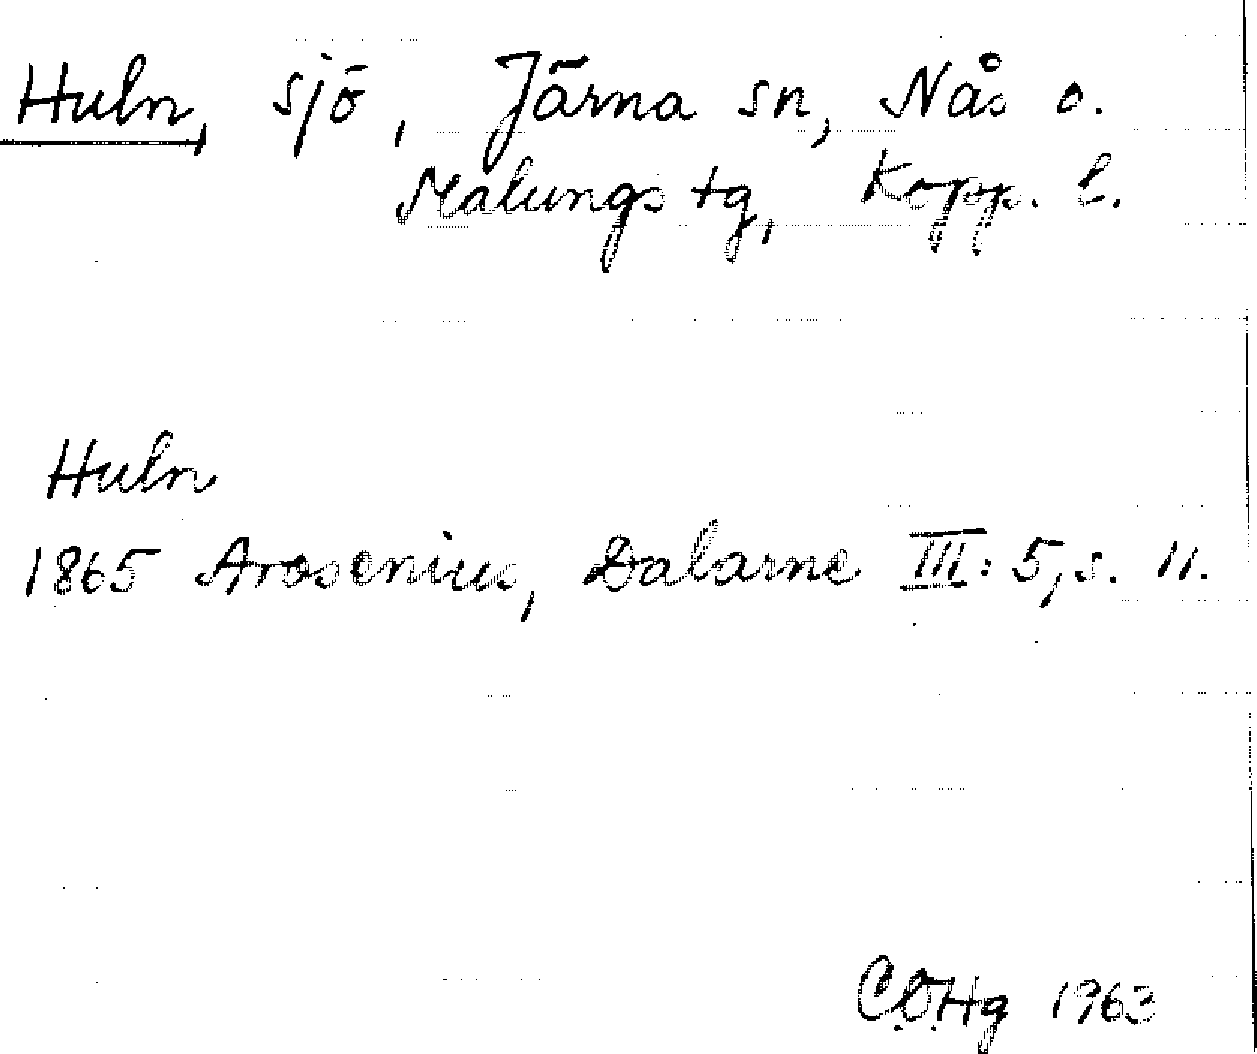 Huln, sjö, Järna sn, Nås o.
Malungs tg, Kopp. l.
Huln
1865 Arosenius, Dalarne III: 5, s. 11.
C.O.Hg 1963